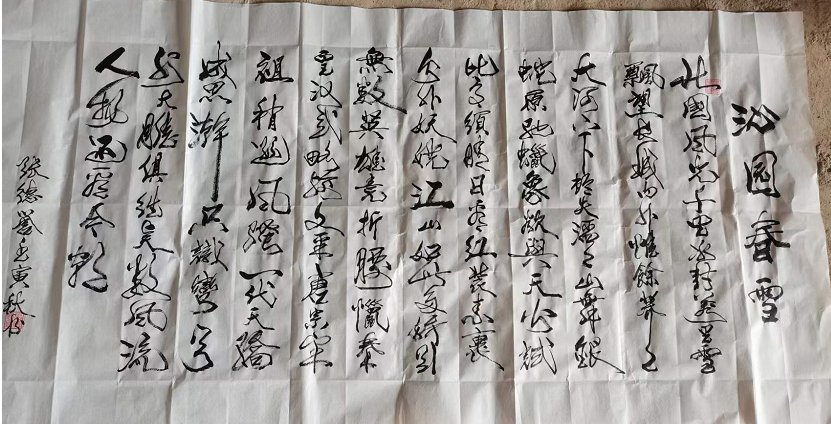 沁园春雪
北國風光千里冰封萬里雪
飄望长城内外惟餘莽々
大河上下顿失滔々山舞銀
蛇原馳蠟象欲與天公試
比高須晴日看红装素裹
分外妖娆江山如此多娇引
無數英雄竞折腰惜秦
皇汉武略输文采唐宗宋
祖稍逊風騷一代天骄
成思汗只識彎弓
射大雕俱往矣数風流
人物还看今朝
张德壬寅秋书